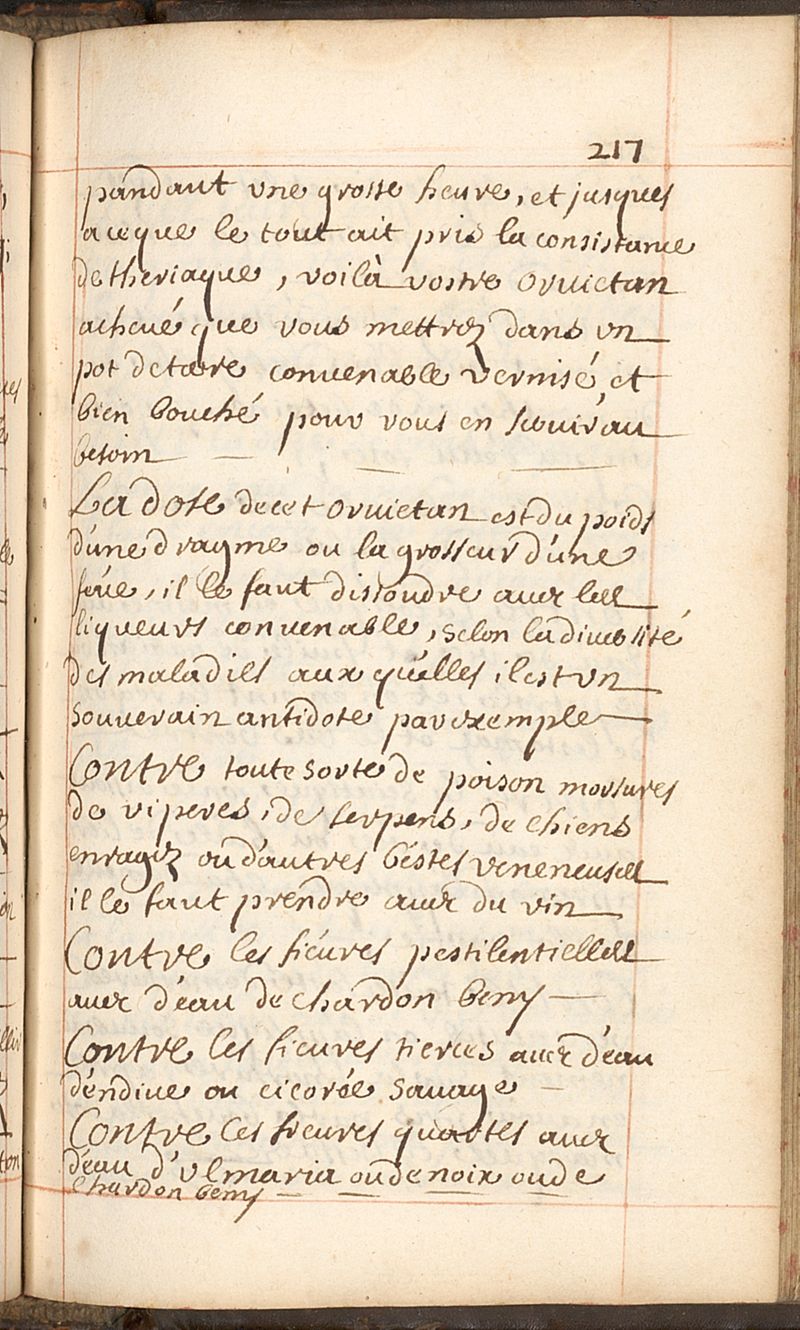 217
pandant une grosse heure, et jusques
a ceque le tout ait pris la consistance
de theriaque, voilà vostre orvietan
achevé que vous mettrez dans un
pot de terre convenable vernisé et
bien bouché pour vous en servir au
besoin
La dose de cet orvietan est du poids
d'une dragme ou la grosseur d'une
féue, il le faut dissoudre avec les
liqueurs convenable, selon la diversité
des maladies aux quelles il est un
souverain antidote par exemple
Contre toute sorte de poison morsures
de viperes, de serpens, de chiens
enragez ou d'autres béstes veneneuses
il le faut prendre avec du vin
Contre les fiévres pestilentielles
avec d'eau de chardon beny
Contre les fievres tierces avec d'eau
d'endive ou cicorée sauvage
Contre les fievres quartes avec
d'eau d'ulmaria ou de noix ou de
chardon beny